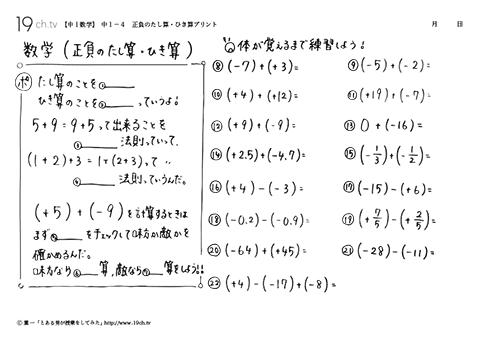 19 ch.tv 【中1数学】 中1-4 正負のたし算・ひき算プリント 月 日
数学 (正負のたし算・ひき算)
体が覚えるまで練習しよう!
ポ たし算のことを①____
ひき算のことを②____っていうよ!
5+9=9+5って出来ることを
③____法則っていって、
(1+2)+3=1+(2+3)って〃
④____法則っていうんだ。
(+5)+(-9)を計算するときは
まず⑤____をチェックして味方か敵かを
確かめるんだ。
味方なら⑥____算,敵なら⑦____算をしよう!!
⑧(-7)+(+3)=
⑨(-5)+(-2)=
⑩(+4)+(+12)=
⑪(+19)+(-7)=
⑫(+9)+(-9)=
⑬0+(-16)=
⑭(+2.5)+(-4.7)=
⑮(-1/3)+(-1/2)=
⑯(+4)-(-3)=
⑰(-15)-(+6)=
⑱(-0.2)-(-0.9)=
⑲(+7/5)-(+2/5)=
⑳(-64)+(+45)=
㉑(-28)-(-11)=
㉒(+4)-(-17)+(-8)=
© 葉一「とある男が授業をしてみた」http://www.19ch.tv